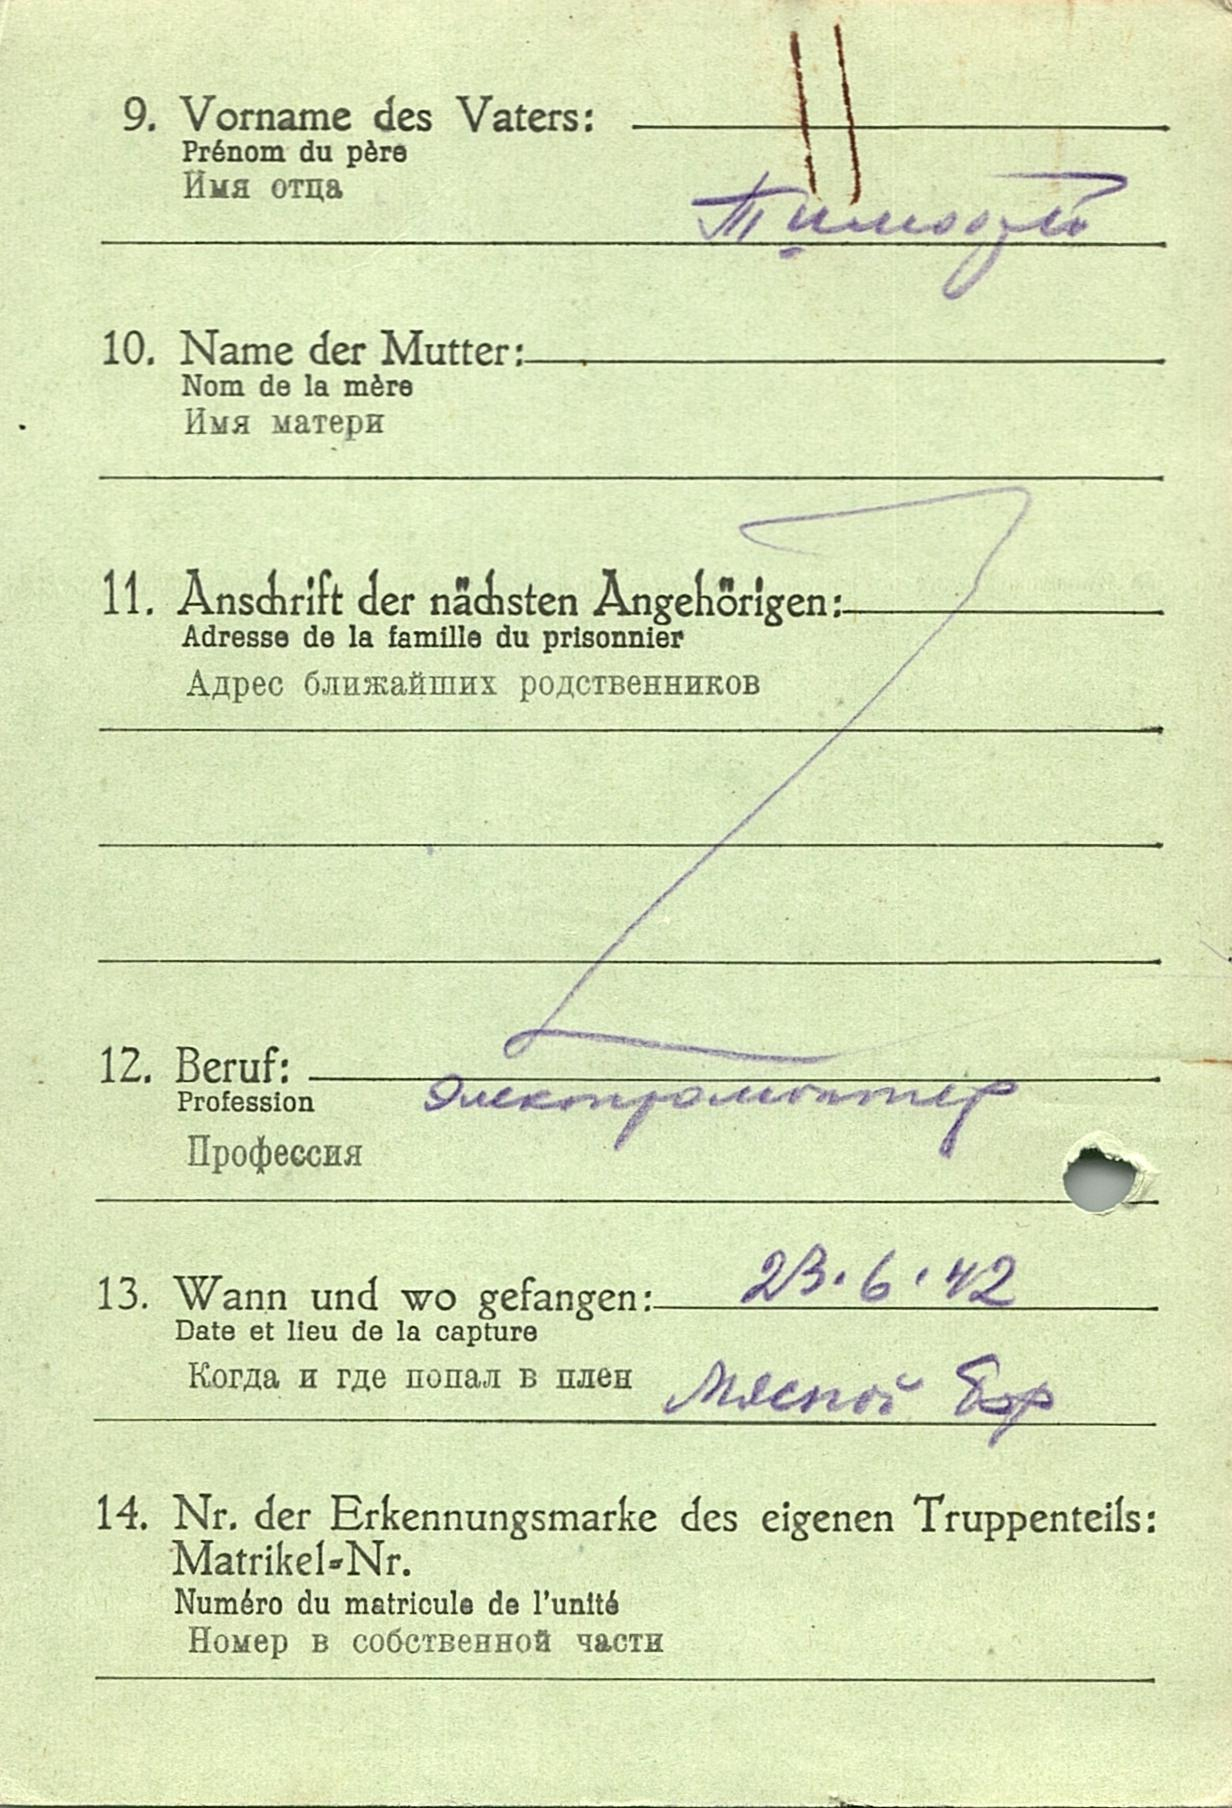 9. Vorname des Vaters:
Prénom du père
Имя отца
Тимофей
10. Name der Mutter:
Nom de la mère
Имя матери
11. Anschrift der nächsten Angehörigen:
Adresse de la famille du prisonnier
Адрес ближайших родственников
12. Beruf:
Profession
электромонтер
Профессия
13. Wann und wo gefangen: 23.6.42
Date et lieu de la capture
Когда и где попал в плен Мясной Бор
14. Nr. der Erkennungsmarke des eigenen Truppenteils:
Matrikel-Nr.
Numéro du matricule de l'unité
Номер в собственной части